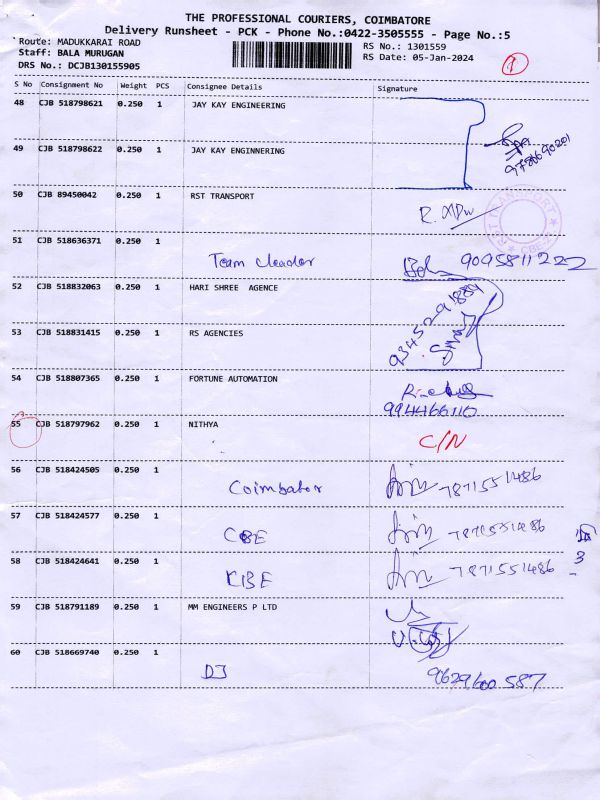 THE PROFESSIONAL COURIERS, COIMBATORE
Delivery Runsheet - PCK - Phone No.:0422-3505555 - Page No.:5
Route: MADUKKARAI ROAD
RS No.: 1301559
Staff: BALA MURUGAN
RS Date: 05-Jan-2024
DRS No.: DCJB130155905
S No Consignment No Weight PCS Consignee Details Signature
48 CJB 518798621 0.250 1 JAY KAY ENGINEERING
49 CJB 518798622 0.250 1 JAY KAY ENGINNERING
50 CJB 89450042 0.250 1 RST TRANSPORT
RST TRANSPORT
CBE
51 CJB 518636371 0.250 1
Team Leader 9095811222
52 CJB 518832063 0.250 1 HARI SHREE AGENCE
53 CJB 518831415 0.250 1 RS AGENCIES
54 CJB 518807365 0.250 1 FORTUNE AUTOMATION
9944466110
55 CJB 518797962 0.250 1 NITHYA
C/N
56 CJB 518424505 0.250 1
Coimbator 7871551486
57 CJB 518424577 0.250 1
CBE 7871551486
58 CJB 518424641 0.250 1
CBE 7871551486
3
59 CJB 518791189 0.250 1 MM ENGINEERS P LTD
60 CJB 518669740 0.250 1
DJ 9629600587